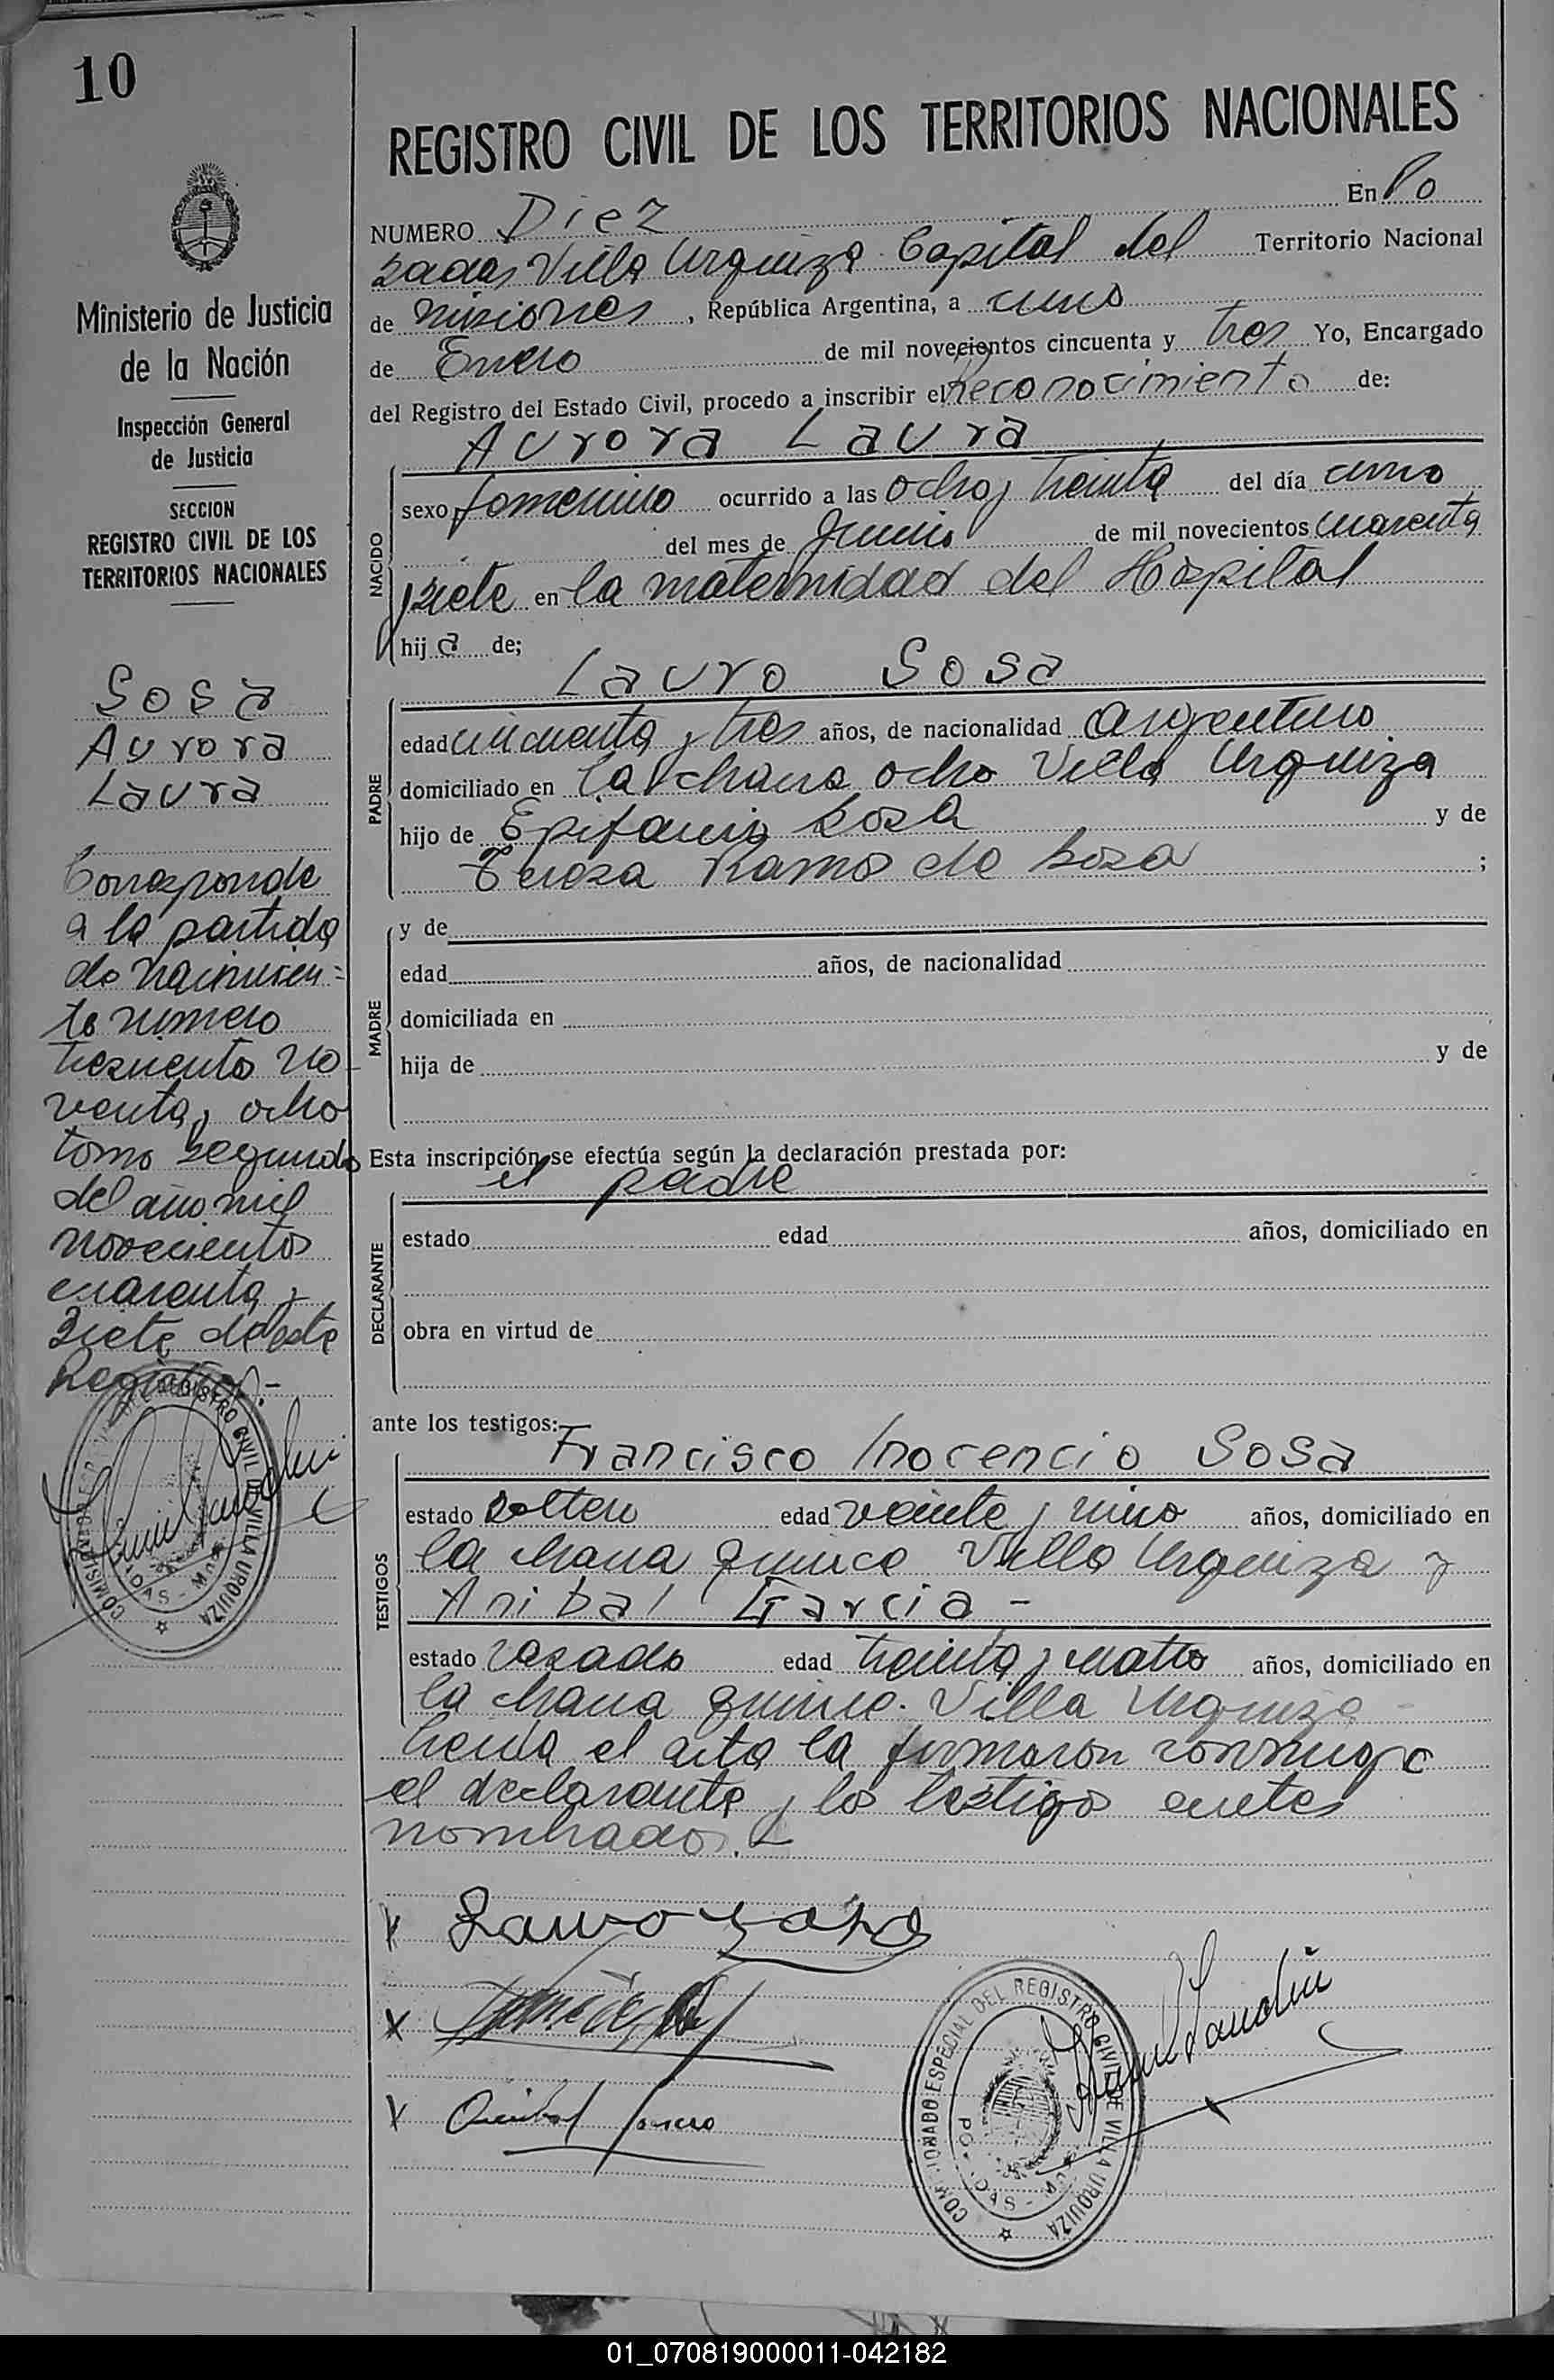 10
Ministerio de Justicia
de la Nación
Inspección General
de Justicia
SECCION
REGISTRO CIVIL DE LOS
TERRITORIOS NACIONALES
Sosa
Aurora
Laura
Corresponde
a la partida
de nacimien=
to numero
trescientos no-
venta y ocho
tomo segundo
del año mil
novecientos
cuarenta y
siete de este
Registro.-
REGISTRO CIVIL DE LOS TERRITORIOS NACIONALES
NUMERO Diez En Po
sadas Villa Urquiza Capital del Territorio Nacional
de Misiones, República Argentina, a uno
de Enero de mil novecientos cincuenta y tres Yo, Encargado
del Registro del Estado Civil, procedo a inscribir el Reconocimiento de:
Aurora Laura
NACIDO
sexo femenino ocurrido a las ocho y treinta del día uno
del mes de Junio de mil novecientos cuarenta
y siete en la maternidad del Hospital
hija de;
Lauro Sosa
PADRE
edad cincuenta y tres años, de nacionalidad argentino
domiciliado en la chacra ocho Villa Urquiza
hijo de Epifanio Sosa y de
Teresa Ramos de Sosa ;
MADRE
y de
edad años, de nacionalidad
domiciliada en
hija de y de
Esta inscripción se efectúa según la declaración prestada por:
el padre
DECLARANTE
estado edad años, domiciliado en
obra en virtud de
ante los testigos:
Francisco Inocencio Sosa
TESTIGOS
estado soltero edad veinte y cinco años, domiciliado en
la chacra quince Villa Urquiza y
Anibal Garcia -
estado casado edad treinta y cuatro años, domiciliado en
la chacra quince. Villa Urquiza -
Leida el acta la firmaron conmigo
el declarante y los testigos antes
nombrados.-
x Lauro Sosa
x
x Anibal
COMISIONADO ESPECIAL DEL REGISTRO CIVIL DE VILLA URQUIZA
POSADAS - M
01_070819000011-042182